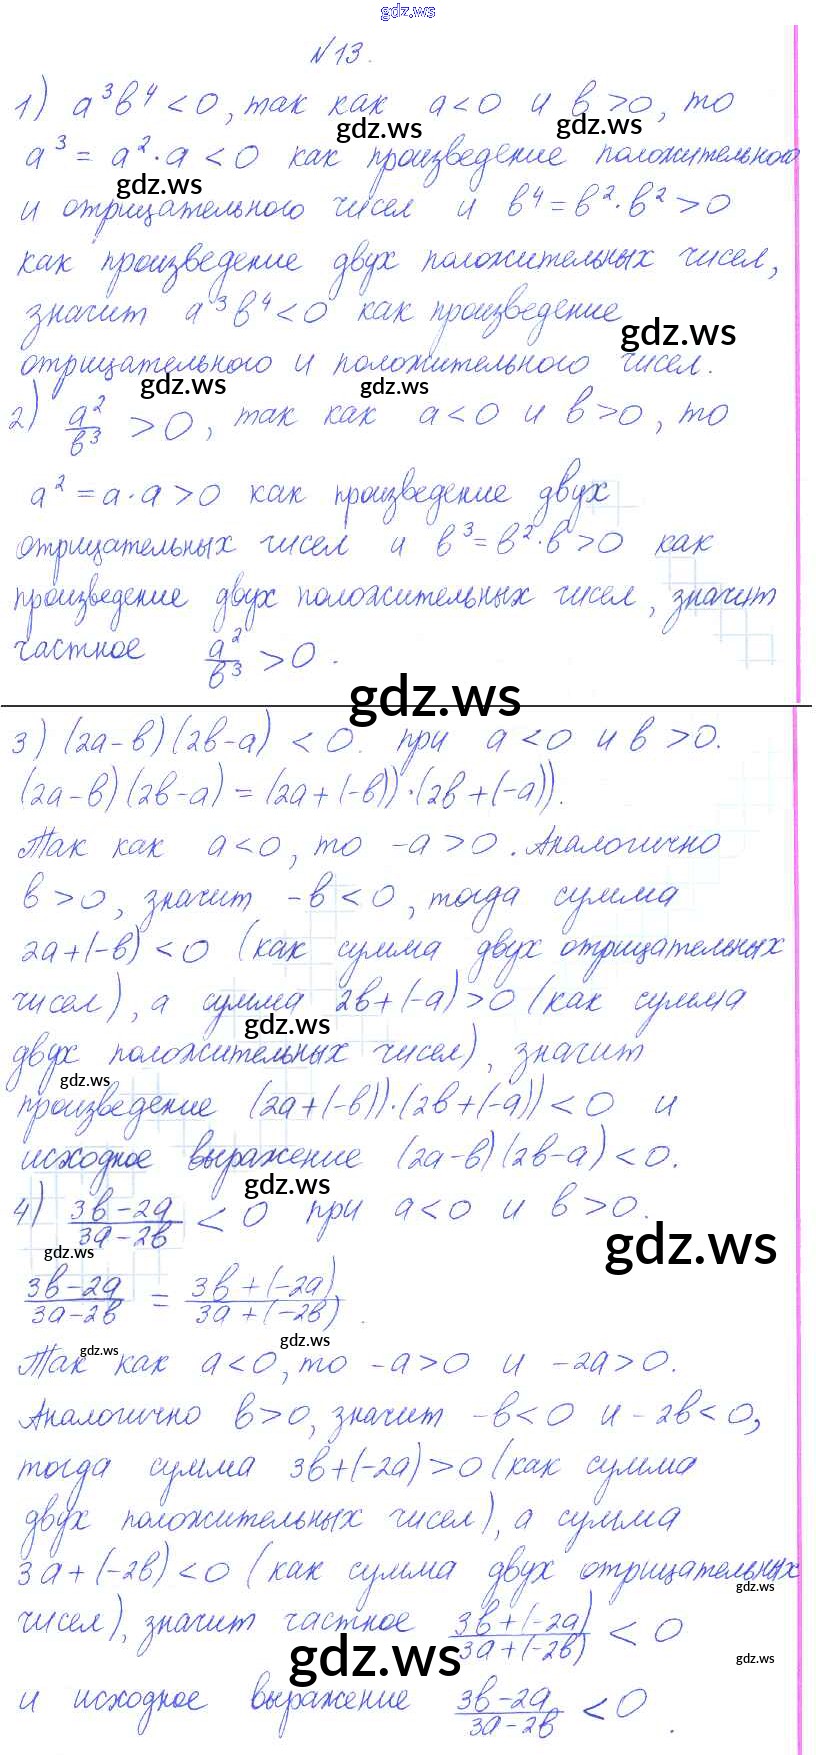 gdz.ws
N13.
1) a³b⁴<0, так как a<0 и b>0, то
gdz.ws gdz.ws
a³ = a²·a < 0 как произведение положительного
gdz.ws
и отрицательного чисел и b⁴=b²·b²>0
как произведение двух положительных чисел,
значит a³b⁴<0 как произведение
gdz.ws
отрицательного и положительного чисел.
gdz.ws gdz.ws
2) a²/b³ > 0, так как a<0 и b>0, то
a²=a·a>0 как произведение двух
отрицательных чисел и b³=b²·b>0 как
произведение двух положительных чисел, значит
частное a²/b³ > 0.
gdz.ws
3) (2a-b)(2b-a) < 0. при a<0 и b>0.
(2a-b)(2b-a) = (2a+(-b))·(2b+(-a)).
Так как a<0, то -a>0. Аналогично
b>0, значит -b<0, тогда сумма
2a+(-b)<0 (как сумма двух отрицательных
чисел), а сумма 2b+(-a)>0 (как сумма
gdz.ws
двух положительных чисел), значит
gdz.ws
произведение (2a+(-b))·(2b+(-a))<0 и
исходное выражение (2a-b)(2b-a)<0.
gdz.ws
4) 3b-2a/3a-2b < 0 при a<0 и b>0.
gdz.ws gdz.ws
3b-2a/3a-2b = 3b+(-2a)/3a+(-2b).
gdz.ws
gdz.ws
Так как a<0, то -a>0 и -2a>0.
Аналогично b>0, значит -b<0 и -2b<0,
тогда сумма 3b+(-2a)>0 (как сумма
двух положительных чисел), а сумма
3a+(-2b)<0 (как сумма двух отрицательных
gdz.ws
чисел), значит частное 3b+(-2a)/3a+(-2b) < 0
gdz.ws gdz.ws
и исходное выражение 3b-2a/3a-2b < 0.